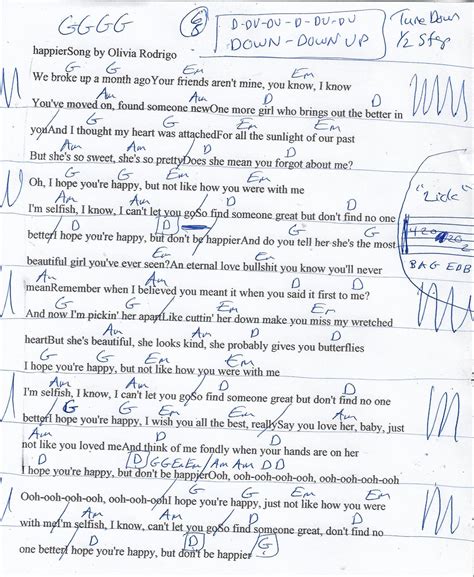 GGGG
6/8
D-DU-DU-D-DU-DU
DOWN-DOWN UP
Tune Down
1/2 Step
happierSong by Olivia Rodrigo
G G Em Em
We broke up a month agoYour friends aren't mine, you know, I know
Am Am D D
You've moved on, found someone newOne more girl who brings out the better in
G G Em Em
youAnd I thought my heart was attachedFor all the sunlight of our past
Am Am D D
But she's so sweet, she's so prettyDoes she mean you forgot about me?
G G Em Em
Oh, I hope you're happy, but not like how you were with me
Am Am D D
I'm selfish, I know, I can't let you goSo find someone great but don't find no one
D G G
betterI hope you're happy, but don't be happierAnd do you tell her she's the most
Em Em Am
beautiful girl you've ever seen?An eternal love bullshit you know you'll never
Am D D
meanRemember when I believed you meant it when you said it first to me?
G G Em Em
And now I'm pickin' her apartLike cuttin' her down make you miss my wretched
Am Am D D
heartBut she's beautiful, she looks kind, she probably gives you butterflies
G G Em Em
I hope you're happy, but not like how you were with me
Am Am D D
I'm selfish, I know, I can't let you goSo find someone great but don't find no one
G G Em Em
betterI hope you're happy, I wish you all the best, reallySay you love her, baby, just
Am Am D
not like you loved meAnd think of me fondly when your hands are on her
D D GGEmEm/Am Am DD
I hope you're happy, but don't be happierOoh, ooh-ooh-ooh, ooh-ooh-ooh-ooh
G G Em Em
Ooh-ooh-ooh-ooh, ooh-ooh-oohI hope you're happy, just not like how you were
Am Am D D
with meI'm selfish, I know, can't let you goSo find someone great, don't find no
D G
one betterI hope you're happy, but don't be happier
"Lick"
BAG EDB